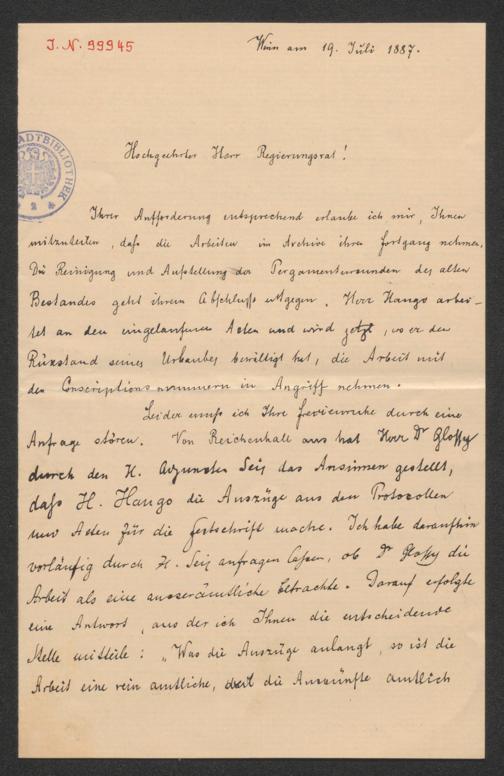 J.N. 99945
Wien am 19. Juli 1887.
STADTBIBLIOTHEK
Hochgeehrter Herr Regierungsrat!
Ihrer Aufforderung entsprechend erlaube ich mir, Ihnen
mitzuteilen, dass die Arbeiten im Archive ihren Fortgang nehmen.
Die Reinigung und Aufstellung der Pergamenturkunden des alten
Bestandes geht ihrem Abschlusse entgegen. Herr Hango arbei-
tet an den eingelaufenen Acten und wird jetzt, wo er den
Rückstand seines Urlaubes bewilligt hat, die Arbeit mit
den Conscriptionsnummern in Angriff nehmen.
Leider muss ich Ihre Ferienruhe durch eine
Anfrage stören. Von Reichenhall aus hat Herr Dr Glossy
durch den H. Adjuncten Seis das Ansinnen gestellt,
dass H. Hango die Auszüge aus den Protocollen
und Acten für die Festschrift mache. Ich habe daraufhin
vorläufig durch H. Seis anfragen lassen, ob Dr Glossy die
Arbeit als eine ausserämtliche betrachte. Darauf erfolgte
eine Antwort, aus der ich Ihnen die entscheidende
Stelle mitteile: „Was die Auszüge anlangt, so ist die
Arbeit eine rein amtliche, die Auskünfte amtlich